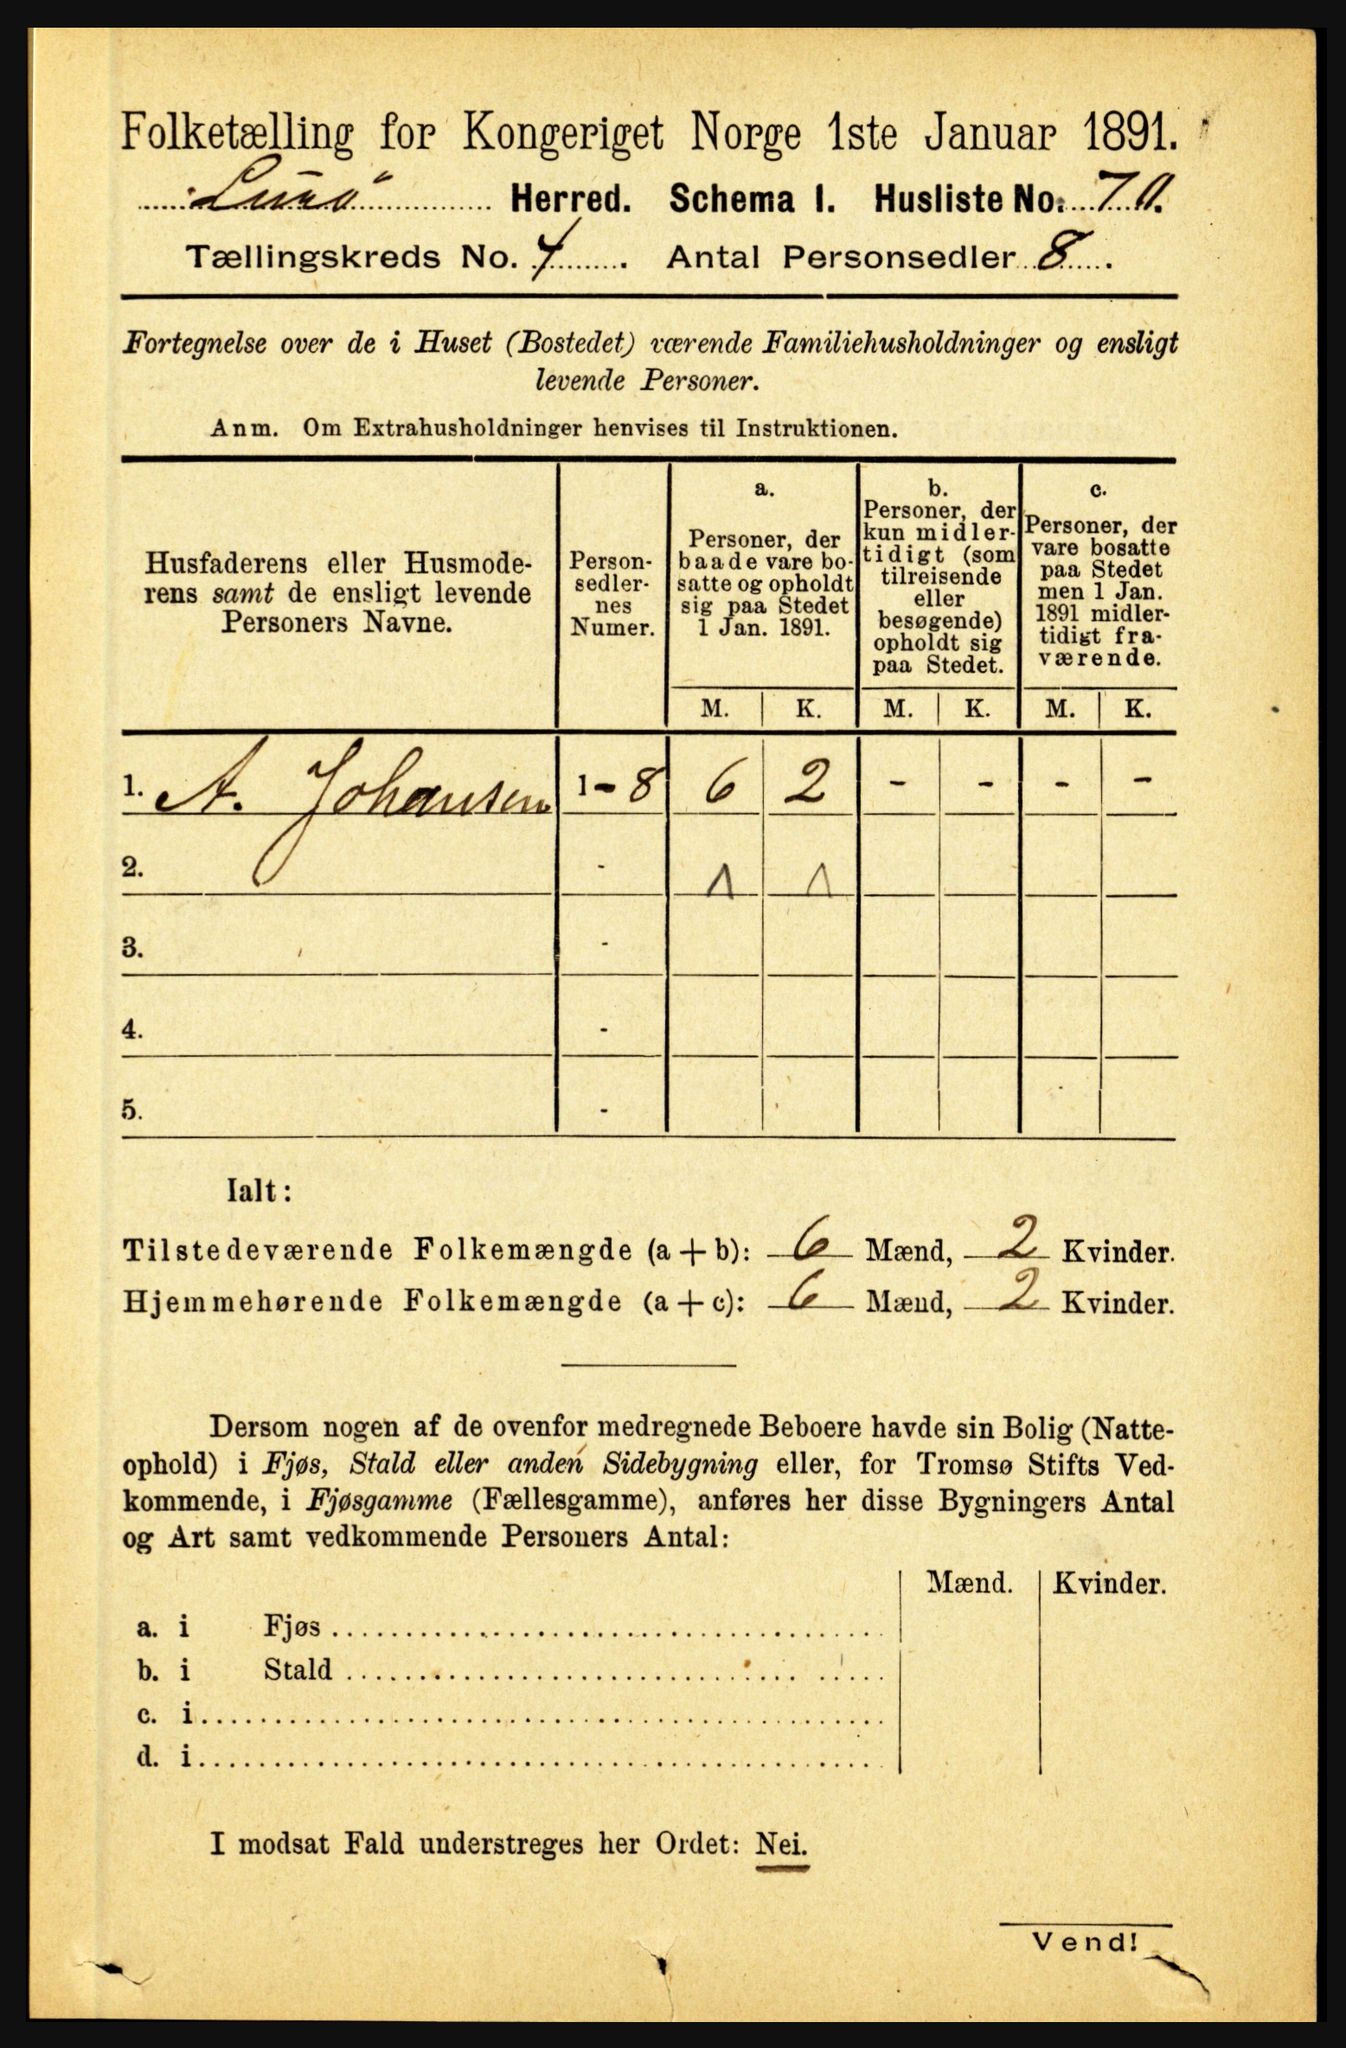 Folketælling for Kongeriget Norge 1ste Januar 1891.
Lurö Herred. Schema I. Husliste No. 70.
Tællingskreds No. 4. Antal Personsedler 8.
Fortegnelse over de i Huset (Bostedet) værende Familiehusholdninger og ensligt
levende Personer.
Anm. Om Extrahusholdninger henvises til Instruktionen.
Husfaderens eller Husmode-
rens samt de ensligt levende
Personers Navne.
Person-
sedler-
nes
Numer.
a.
Personer, der
baade vare bo-
satte og opholdt
sig paa Stedet
1 Jan. 1891.
b.
Personer, der
kun midler-
tidigt (som
tilreisende
eller
besøgende)
opholdt sig
paa Stedet.
c.
Personer, der
vare bosatte
paa Stedet
men 1 Jan.
1891 midler-
tidigt fra-
værende.
M. K. M. K. M. K.
1. A. Johansen 1-8 6 2 - - - -
2. -
3. -
4. -
5. -
Ialt:
Tilstedeværende Folkemængde (a+b): 6 Mænd, 2 Kvinder.
Hjemmehørende Folkemængde (a+c): 6 Mænd, 2 Kvinder.
Dersom nogen af de ovenfor medregnede Beboere havde sin Bolig (Natte-
ophold) i Fjøs, Stald eller anden Sidebygning eller, for Tromsø Stifts Ved-
kommende, i Fjøsgamme (Fællesgamme), anføres her disse Bygningers Antal
og Art samt vedkommende Personers Antal:
Mænd. Kvinder.
a. i Fjøs
b. i Stald
c. i
d. i
I modsat Fald understreges her Ordet: Nei.
Vend!